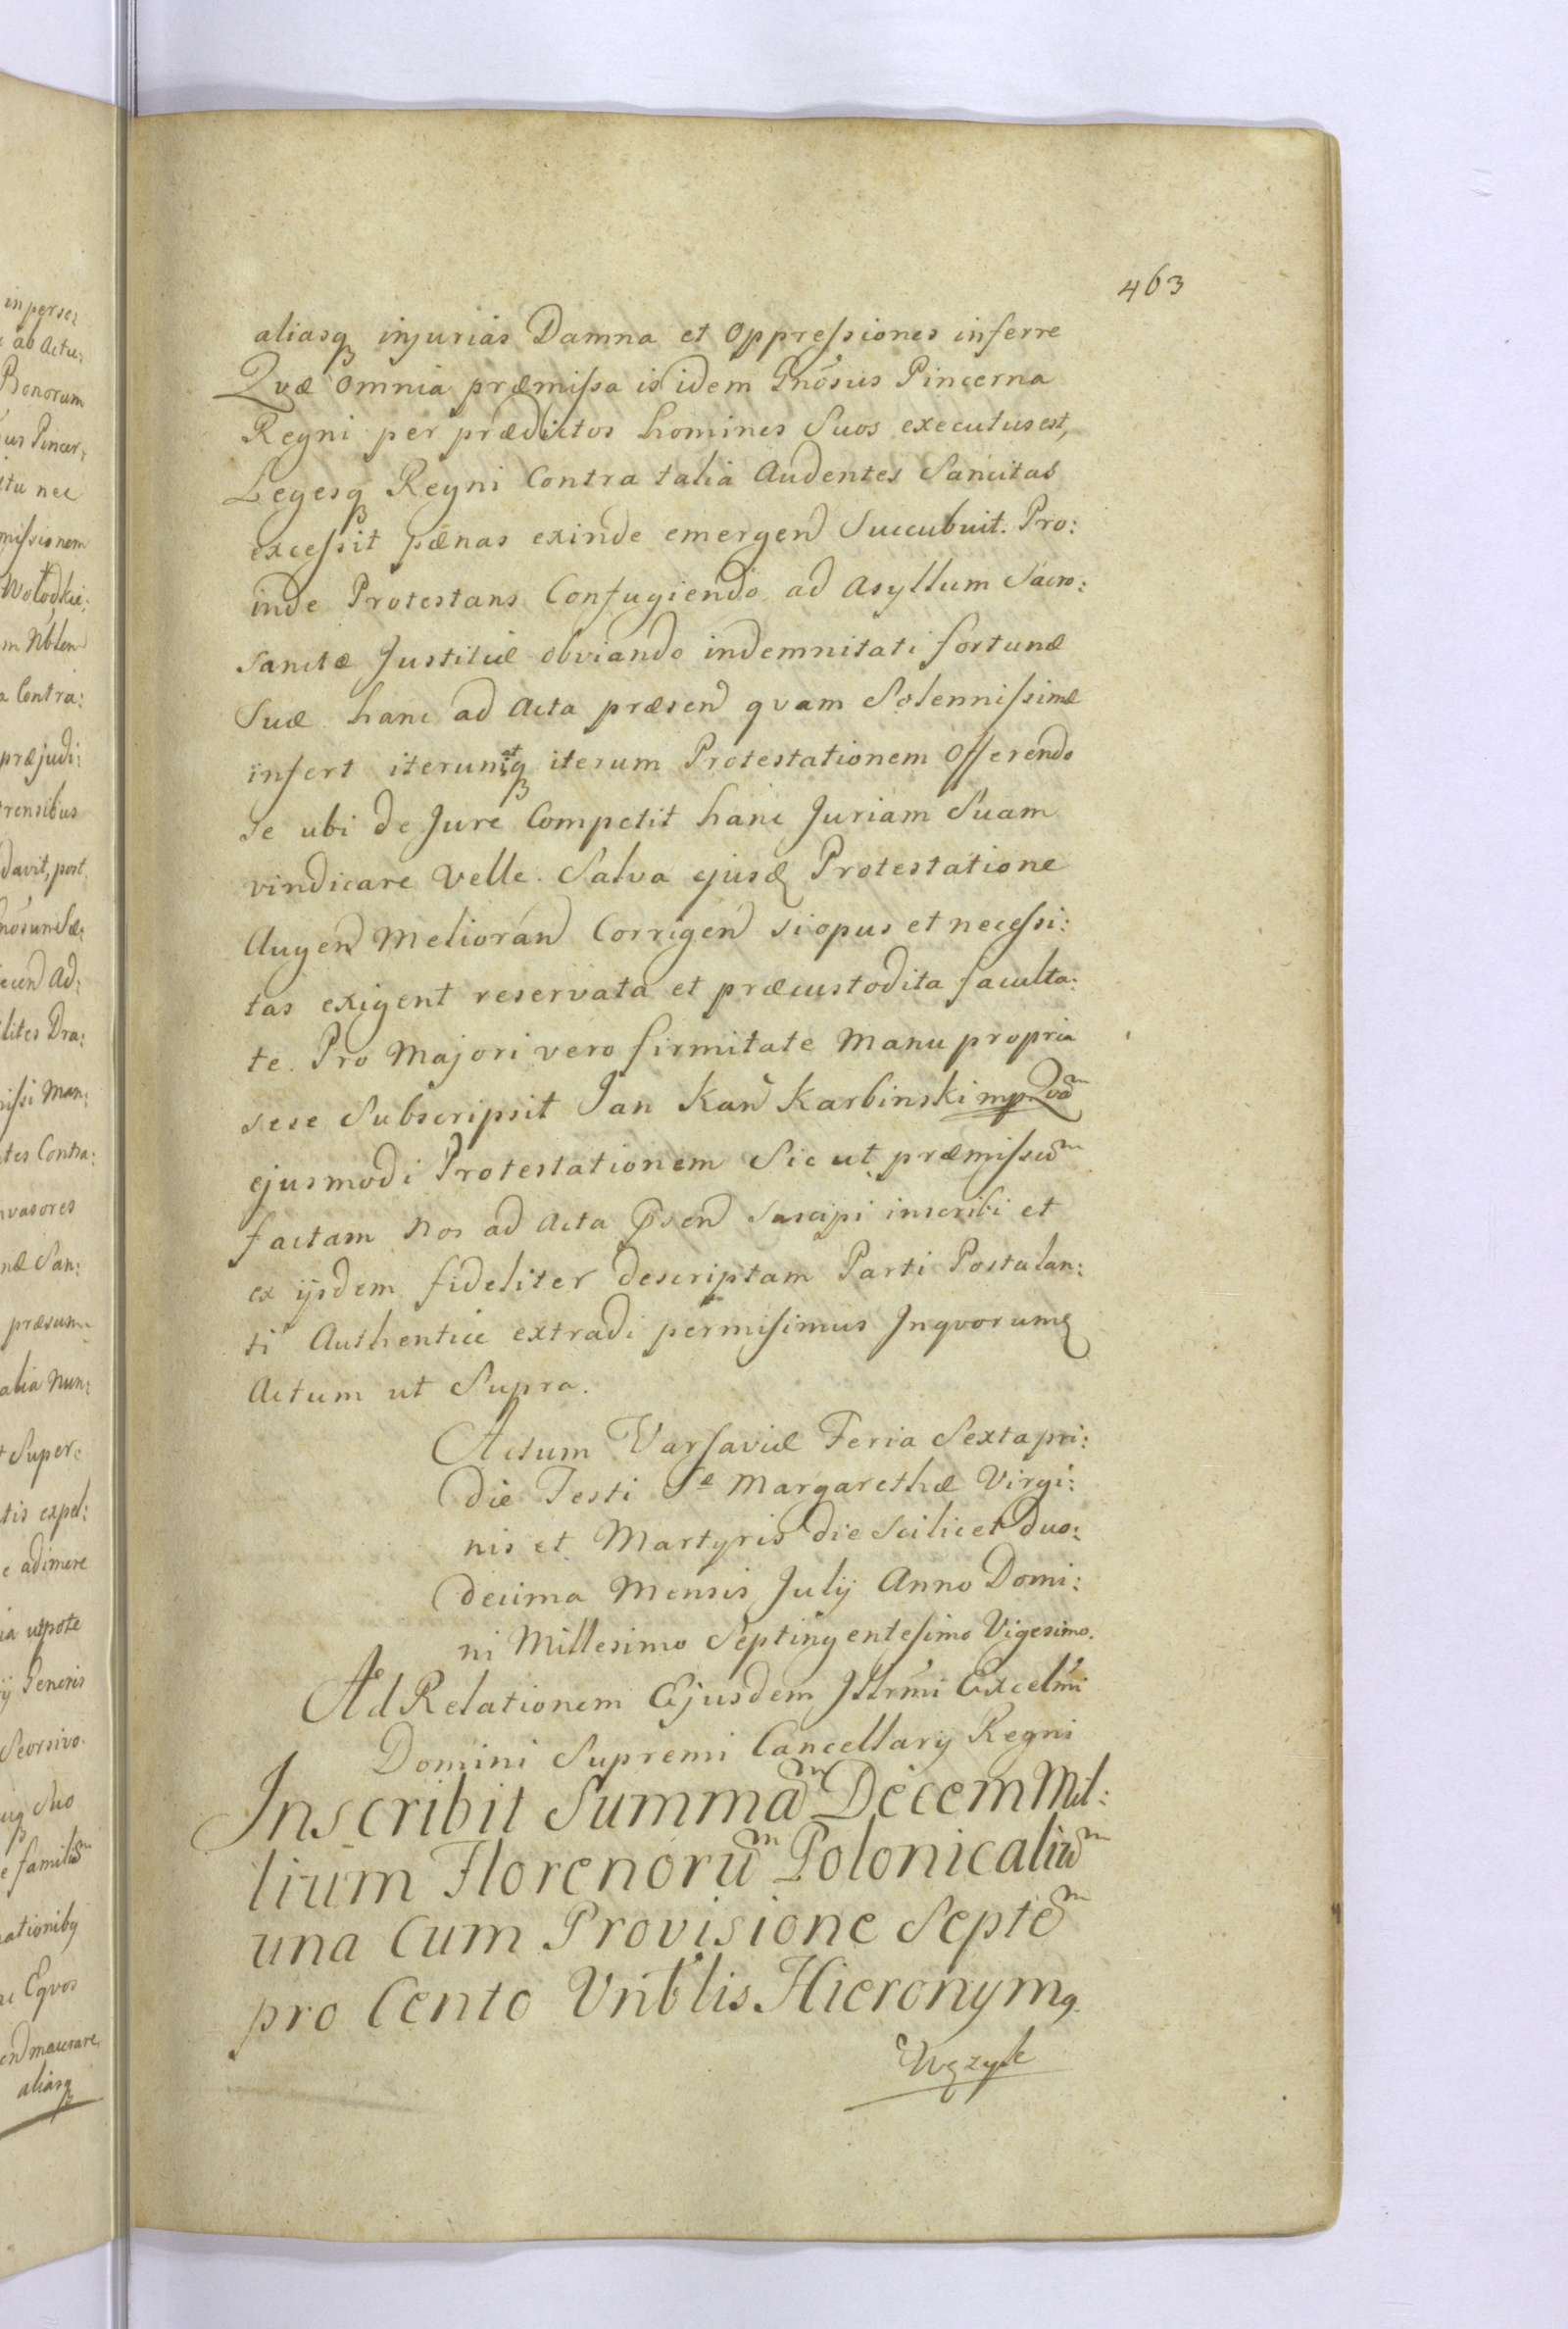 463
aliasq injurias Damna et Oppressiones inferre
Qvæ omnia præmissa is idem Gnosus Pincerna
Regni per prædictos homines Suos executus est,
Legesq Regni Contra talia Audentes Sancitas
excessit pænas exinde emergend Succubuit. Pro:
inde Protestans Confugiendo ad Asyllum Sacro:
sanctæ Justitiæ obviando indemnitati fortunæ
Suæ hanc ad Acta præsend qvam Solennissimæ
infert iterum itq iterum Protestationem Offerendo
se ubi de Jure Competit hanc Juriam Suam
vindicare Velle. Salva ejusd Protestatione
Augend Meliorand Corrigend si opus et necessi:
tas exigent reservata et præcustodita faculta:
te. Pro Majori vero firmitate Manu propria
sese Subscripsit Jan Kań Karbinski mp Qvam
ejusmodi Protestationem Sic ut præmissum
factam Nos ad Acta Psend Suscipi inscribi et
ex ijsdem fideliter descriptam Parti Postulan:
ti Authentice extradi permisimus Inqvorum
Actum ut Supra.
Actum Varsaviæ Feria Sexta pri:
die Festi Sæ Margarethæ Virgi:
nis et Martyris die Scilicet duo:
decima Mensis July Anno Domi:
ni Millesimo Septingentesimo Vigesimo.
Ad Relationem Ejusdem Illrmi Excelmi
Domini Supremi Cancellary Regni
Inscribit Summam Decem Mil:
lium Florenorum Polonicalium
una Cum Provisione Septem
pro Cento Vnblis Hieronymq
Wężyk
in perso:
ab Actu:
Bonorum
sus Pincer:
itu nec
missionem
Wołodkie:
m Nblen
a Contra:
præjudi:
rensibus
davit, post
nosum Sæ:
ecend Ad:
lites Dra:
issi Man:
tes Contra:
vasores
næ San:
præsum
alia Nun:
t Super:
tis expel:
e adimere
ia utpote
ij Generis
Seorsivo
uq Suo
e familiam
ationibq
ne Eqvos
end macerare
aliasq